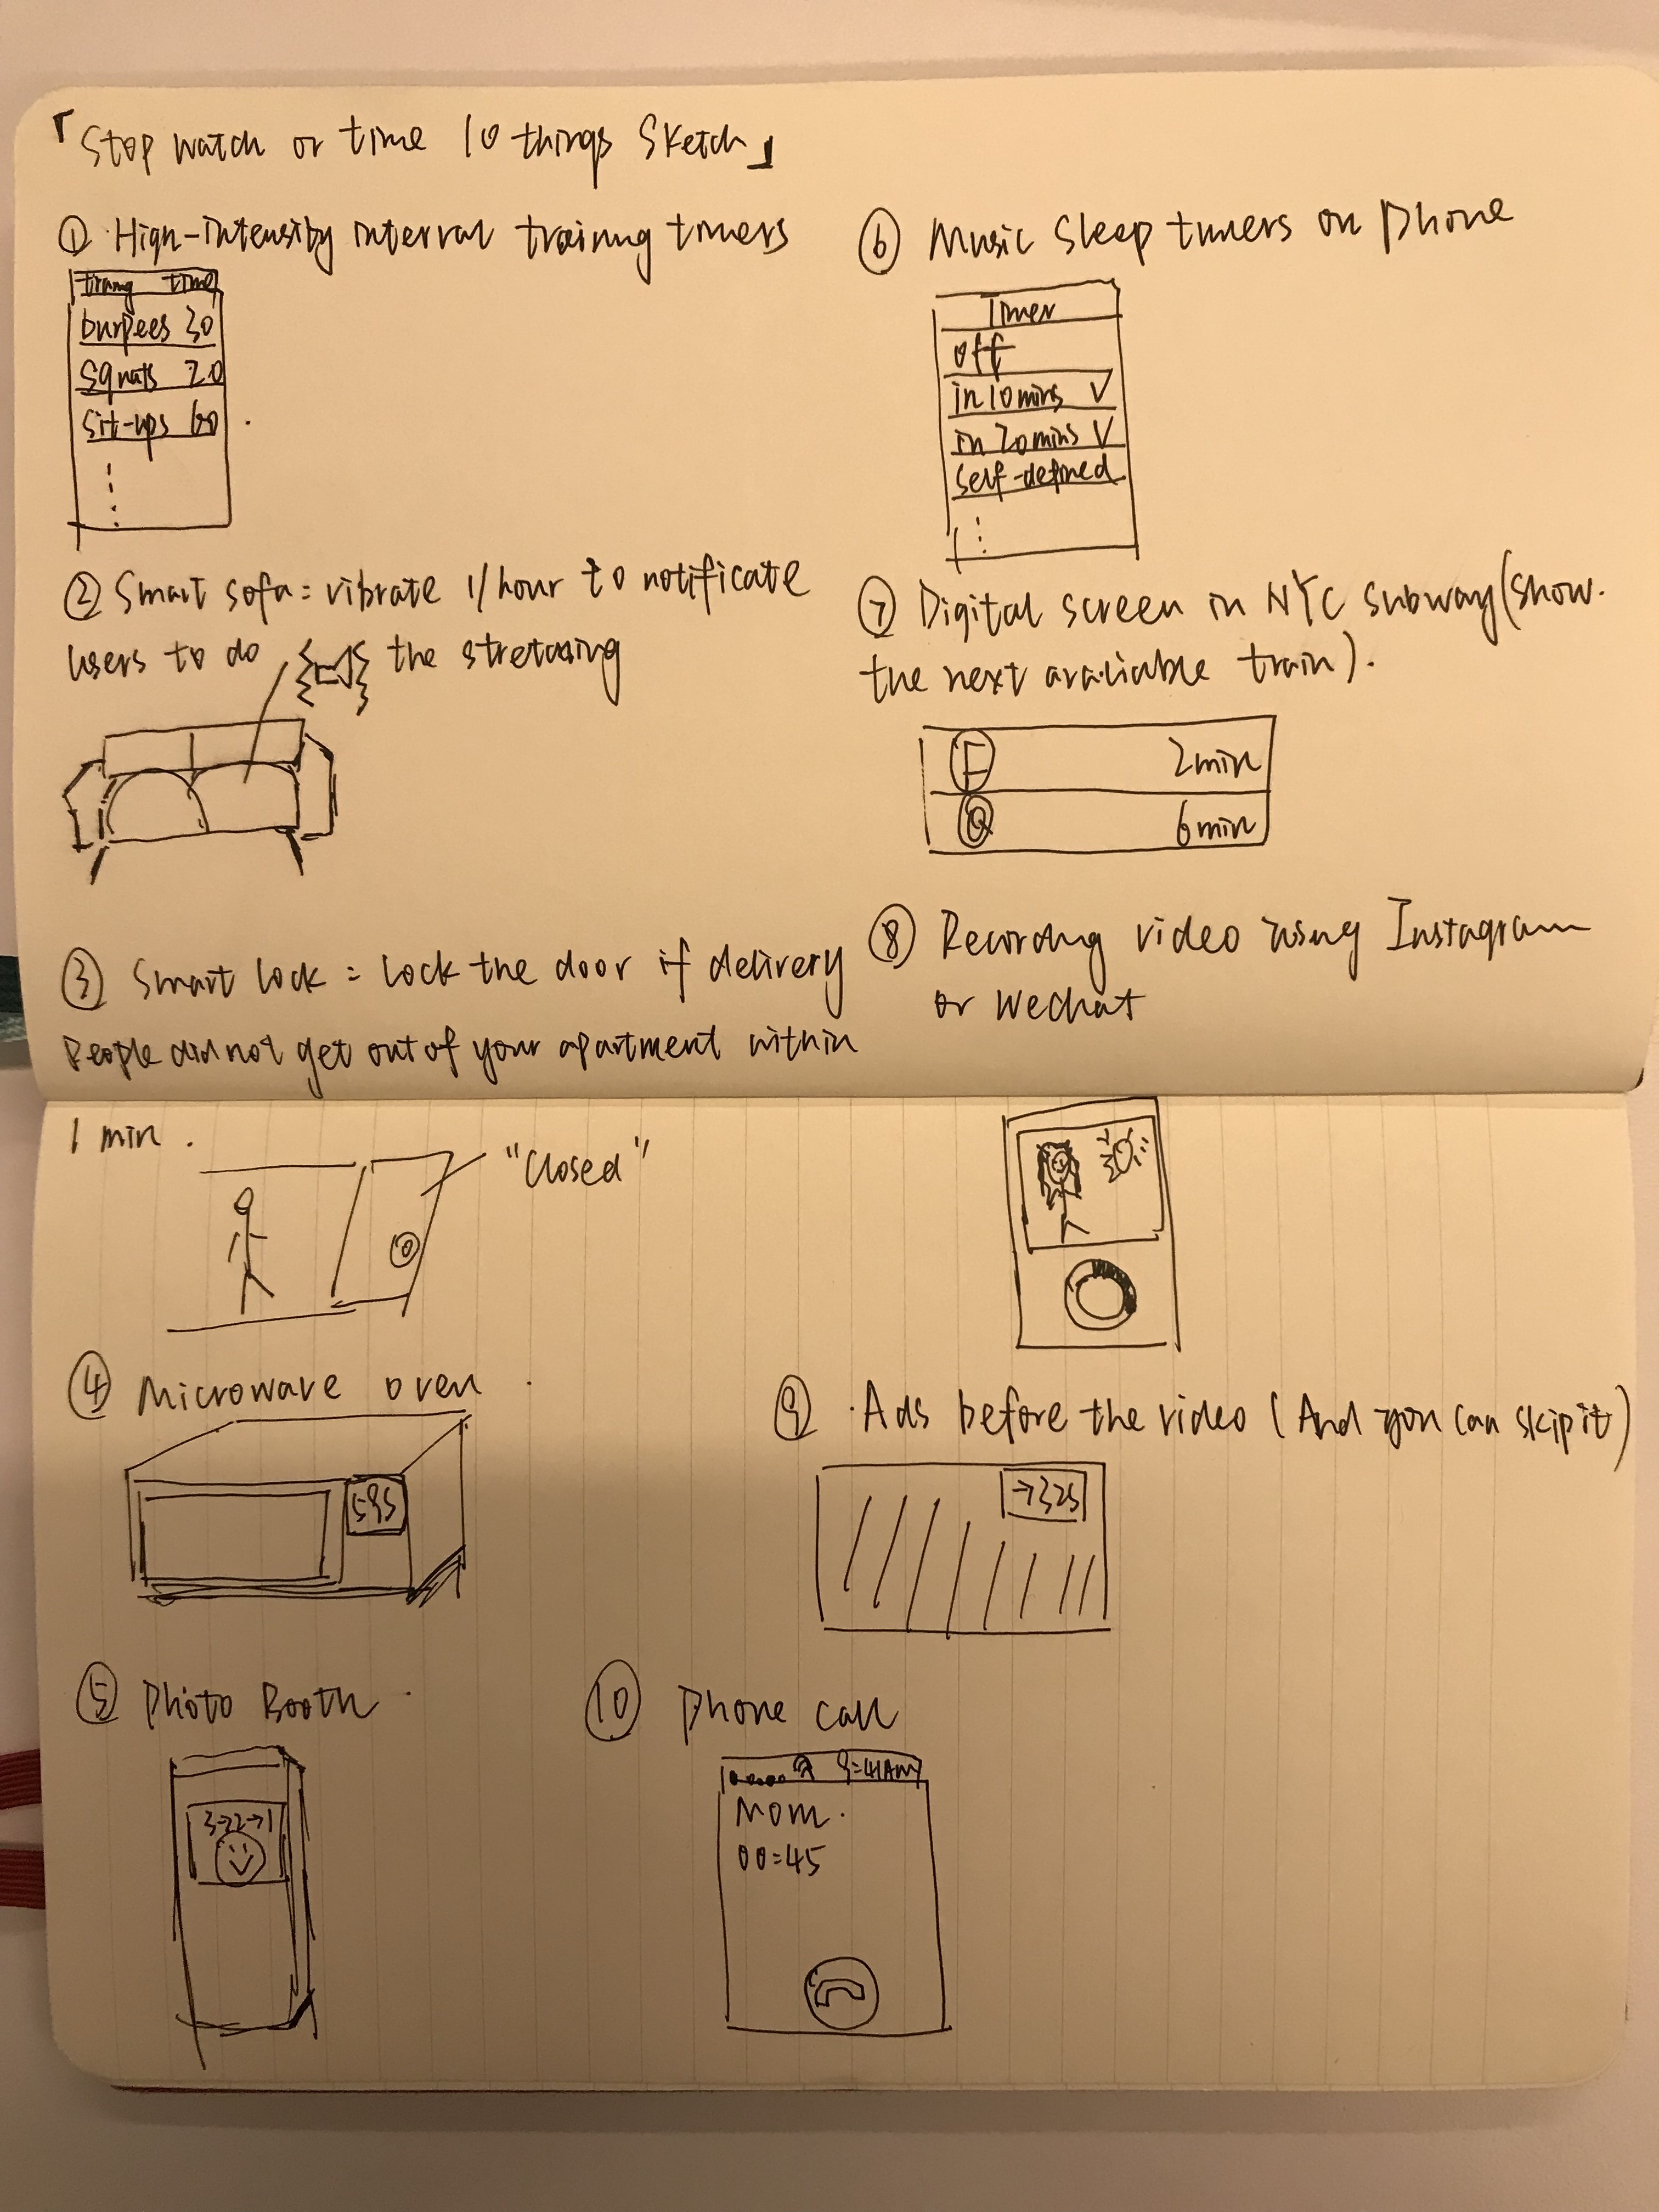 「Stop watch or time 10 things Sketch」
① High-intensity interval training timers
traing time
burpees 30
squats 20
Sit-ups 60
② Smart sofa = vibrate 1/hour to notificate
users to do the stretching
③ Smart lock = lock the door if delivery
people did not get out of your apartment within
1 min.
"Closed"
④ Microwave oven
59s
⑤ Photo Booth
3→2→1
⑥ Music Sleep timers on phone
Timer
off
in 10 mins ✓
in 20 mins ✓
Self-defined
⑦ Digital screen in NYC subway (show
the next avaliable train).
F 2min
Q 6min
⑧ Recording video using Instagram
or Wechat
⑨ Ads before the video (And you can skip it)
→32s
⑩ phone call
9=41AM
Mom.
00=45